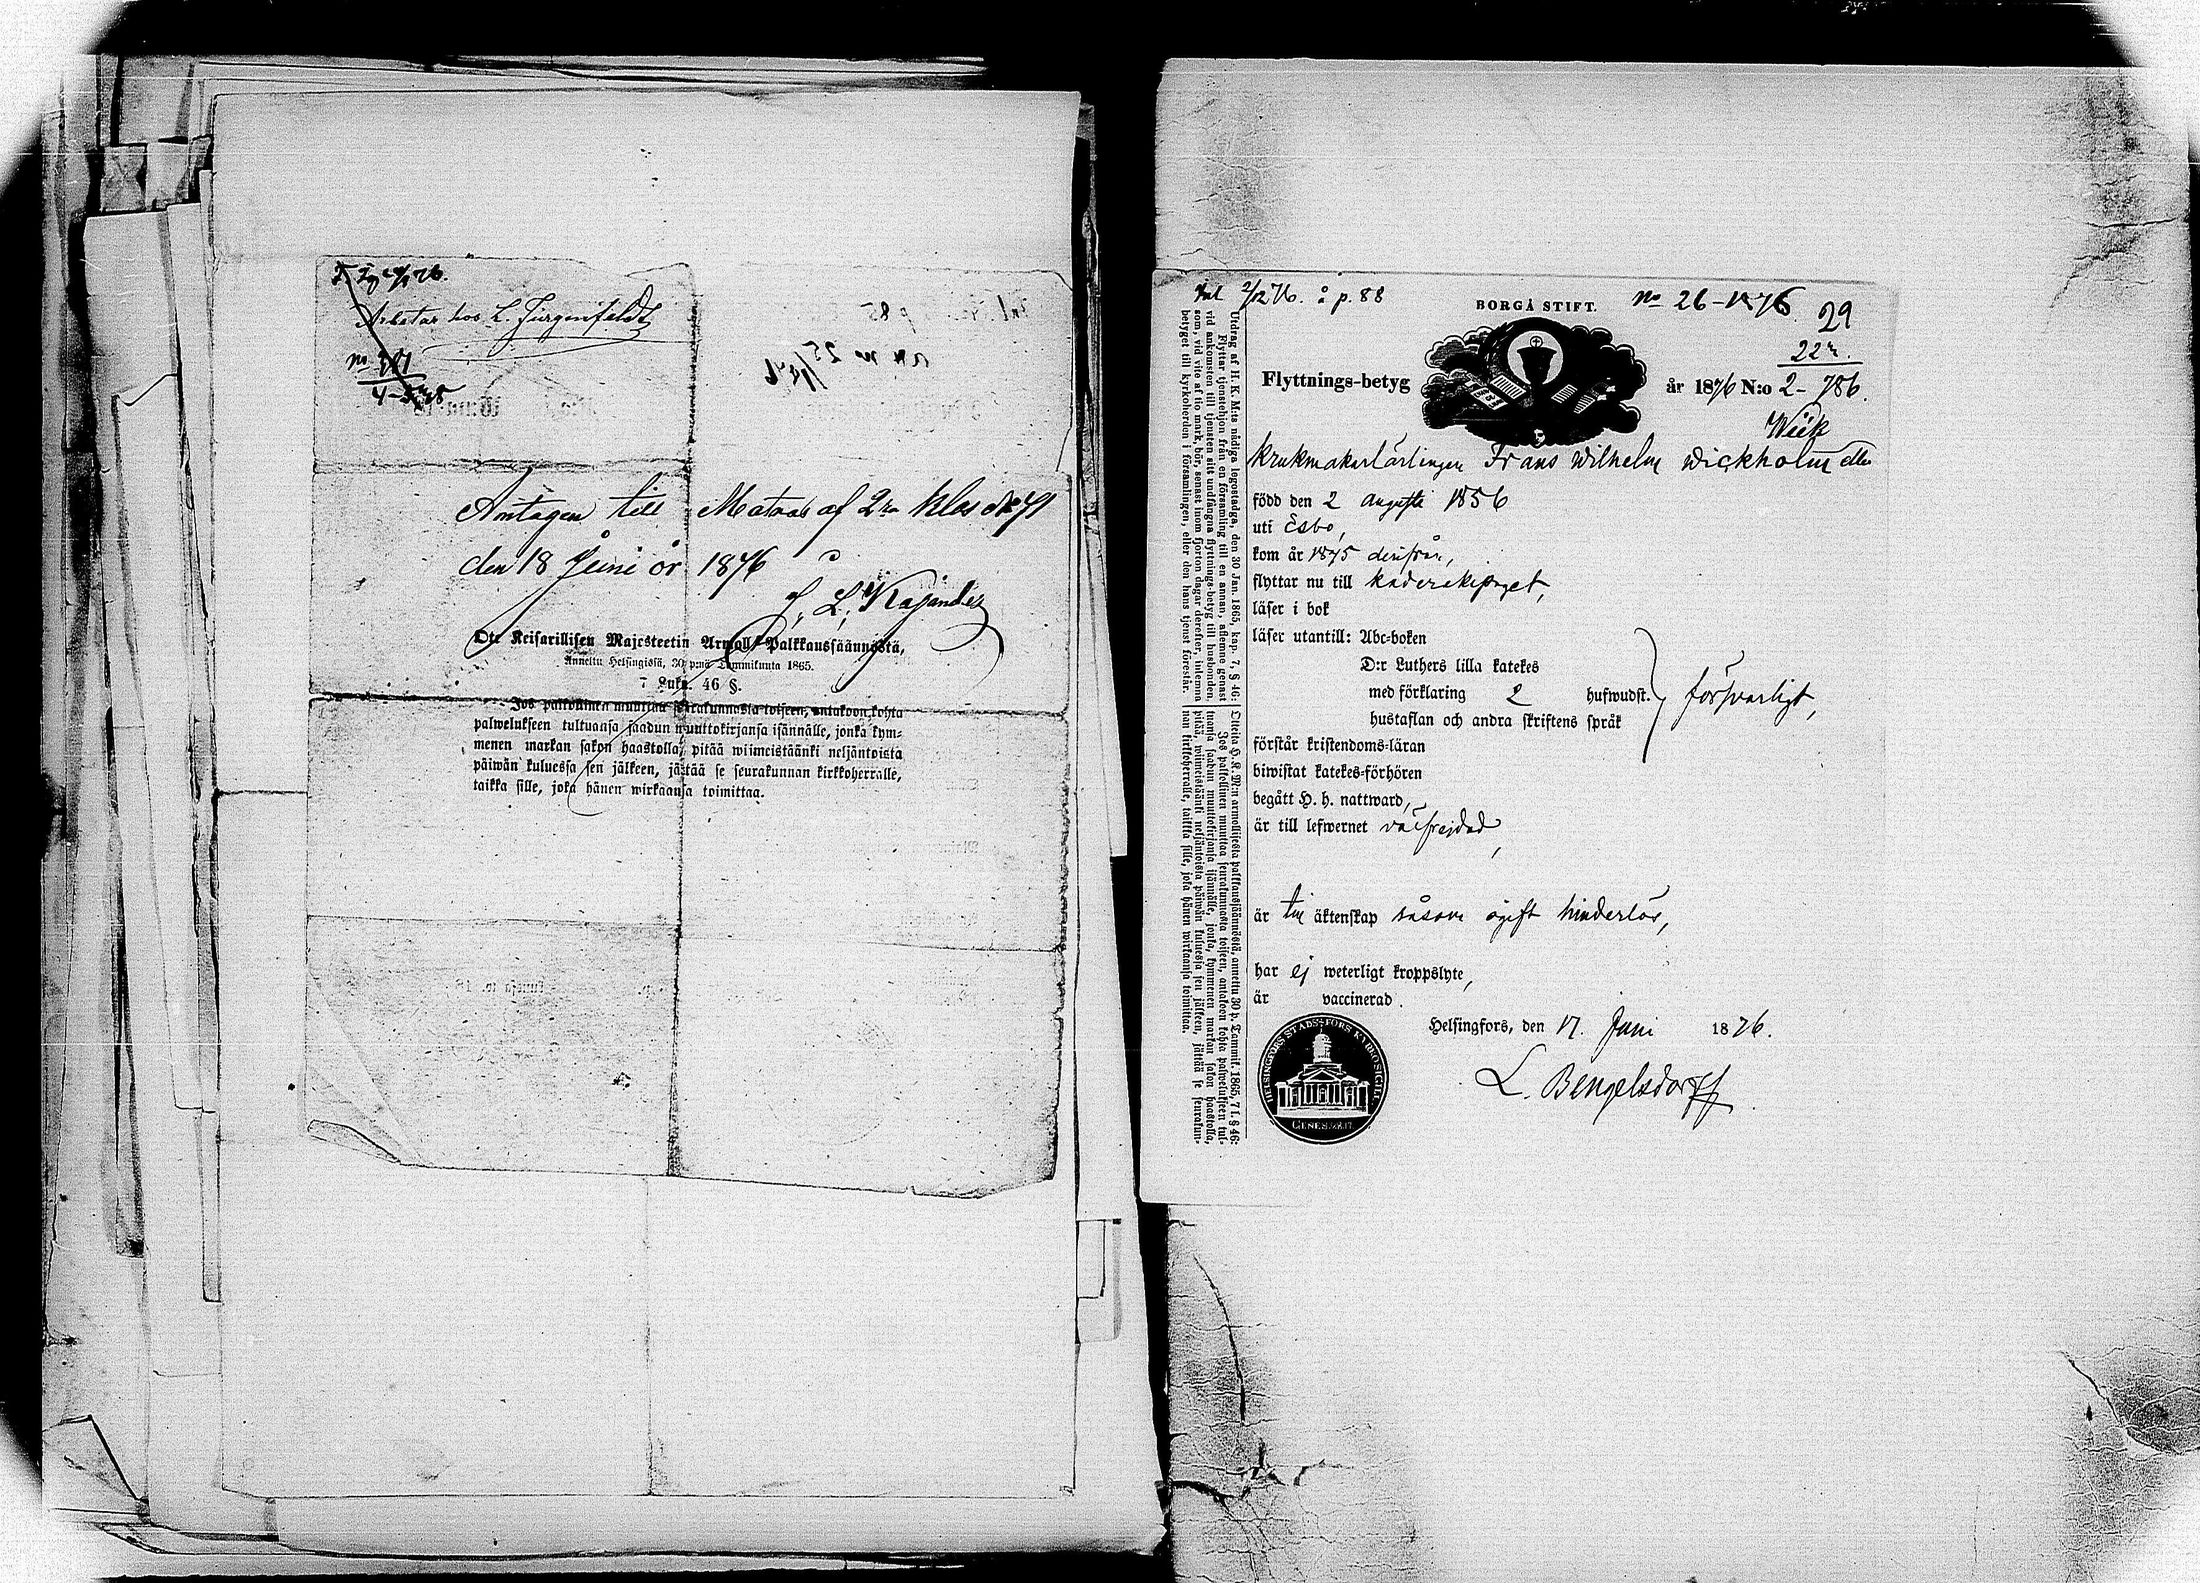 Arbetar hos L. Jürgenfeldt
Antagen till Matros af 2ra klas No 71
den 18 Juni år 1876
J. L. Kajander
Ote Keisarillisen Majesteetin Armoll. Palkkaussäännöstä,
Annettu Helsingissä, 30 p:nä Tammikuuta 1865.
7 Luku. 46 §.
Jos palkollinen muuttaa seurakunnasta toiseen, antakoon, kohta
palwelukseen tultuansa saadun muuttokirjansa isännälle, jonka kym-
menen markan sakon haastolla, pitää wiimeistäänki neljäntoista
päiwän kuluessa sen jälkeen, jättää se seurakunnan kirkkoherralle,
taikka sille, joka hänen wirkaansa toimittaa.
2/12 76. å p. 88
BORGÅ STIFT.
No 26-1876
29
22
Flyttnings-betyg
år 1876 N:o 2-786.
Wiik
Krukmakarlärlingen Frans Wilhelm Wickholm eller
född den 2 Augusti 1856
uti Esbo,
kom år 1875 derifrån,
flyttar nu till Kaderskeppet,
läser i bok
läser utantill: Abc-boken
D:r Luthers lilla katekes
med förklaring 2 hufwudst.
försvarligt,
hustaflan och andra skriftens språk
förstår kristendoms-läran
biwistat katekes-förhören
begått H. h. nattward,
är till lefwernet välfrejdad,
är till äktenskap såsom ogift hinderlös,
har ej weterligt kroppslyte,
är vaccinerad.
Helsingfors, den 17. Juni 1876.
L. Bengelsdorff
Utdrag af H. K. M:ts nådiga legostadga, den 30 Jan. 1865, kap. 7, § 46:
Flyttar tjenstehjon från en församling till en annan, aflemne genast
vid ankomsten till tjensten sitt undfångna flyttnings-betyg till husbonden
som, vid vite af tio mark, bör, senast inom fjorton dagar derefter, inlemna
betyget till kyrkoherden i församlingen, eller den hans tjenst förestår.
Otteita H. K. M:n armollisesta palkkaussäännöstä, annettu 30 p. Tammik. 1865, 7 l. § 46:
Jos palkollinen muuttaa seurakunnasta toiseen, antakoon kohta palwelukseen tul-
tuansa saadun muuttokirjansa isännälle, jonka, kymmenen markan sakon haastolla,
pitää, wiimeistäänki neljäntoista päiwän kuluessa sen jälkeen, jättää se seurakun-
nan kirkkoherralle, taikka sille, joka hänen wirkaansa toimittaa.